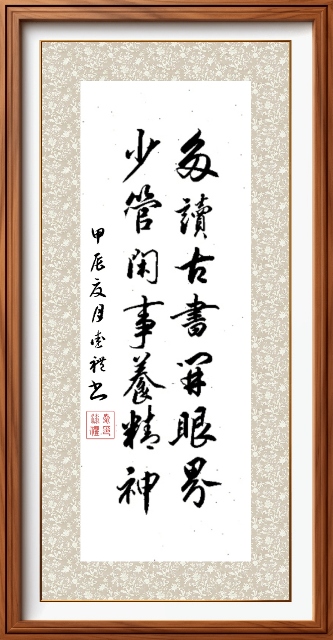 多讀古書開眼界
少管閑事養精神
甲辰夏月壹禮书